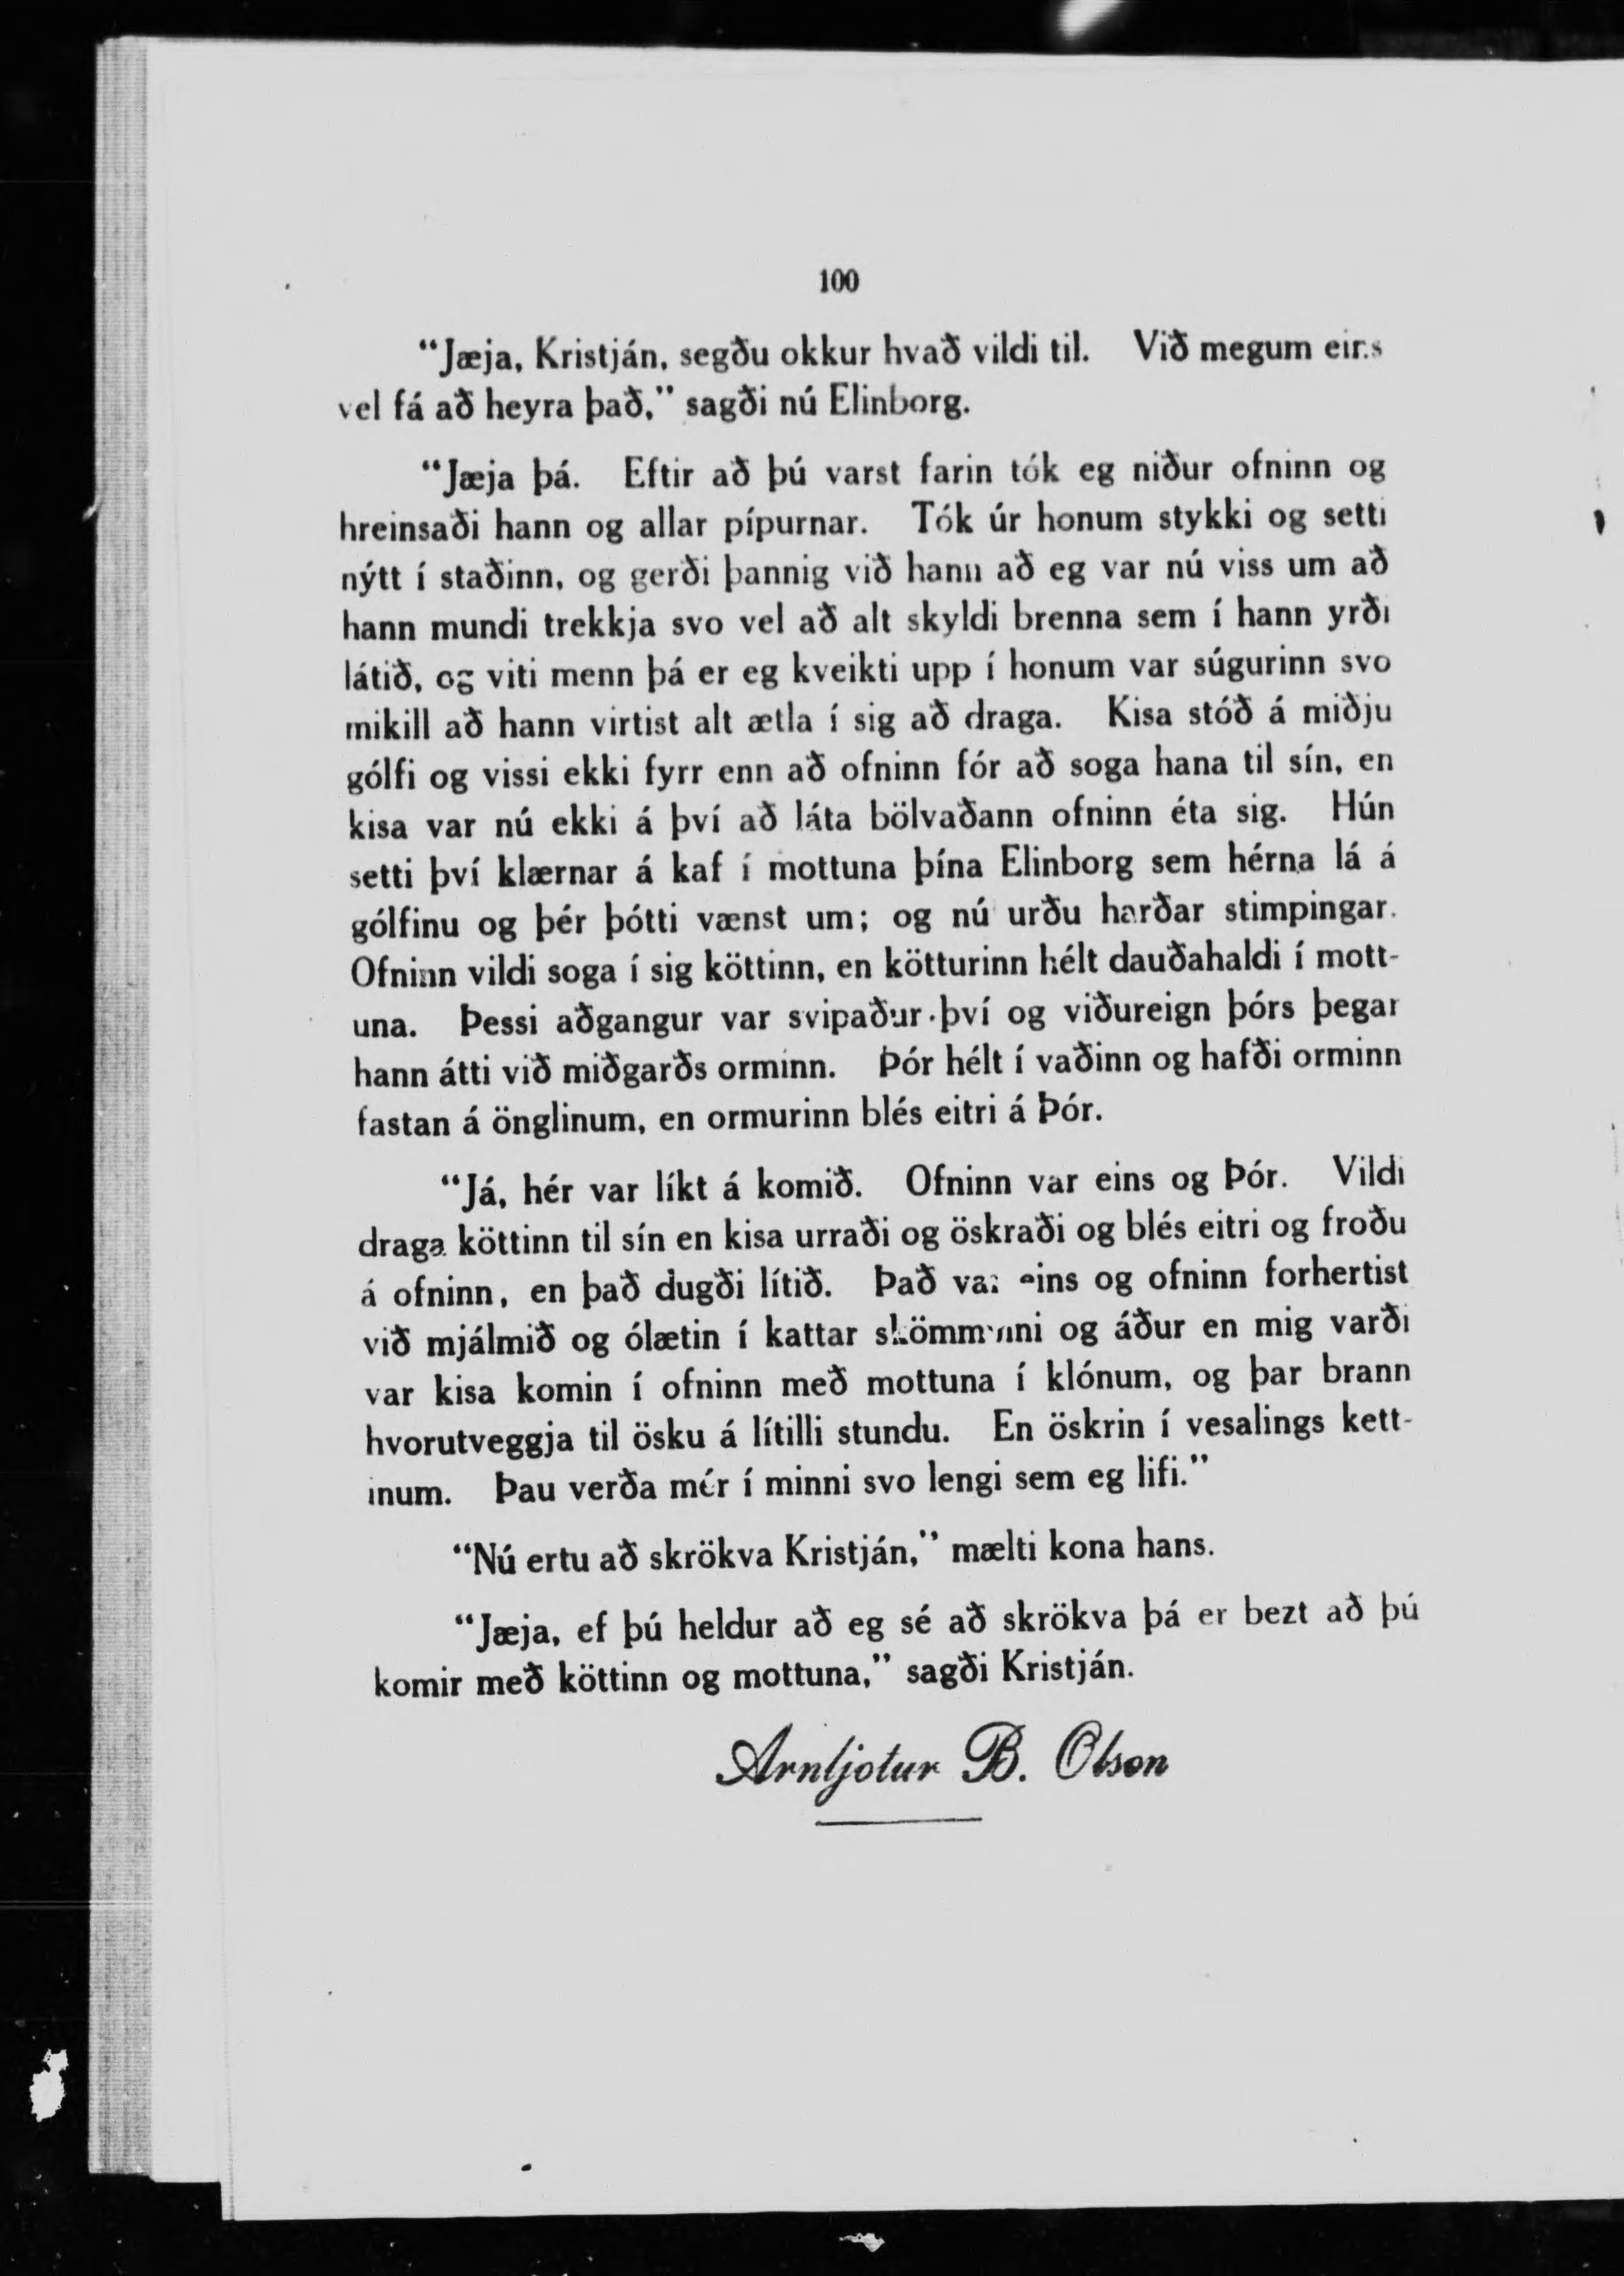 100
“Jæja, Kristján, segðu okkur hvað vildi til. Við megum eins
vel fá að heyra það,” sagði nú Elinborg.
“Jæja þá. Eftir að þú varst farin tók eg niður ofninn og
hreinsaði hann og allar pípurnar. Tók úr honum stykki og setti
nýtt í staðinn, og gerði þannig við hann að eg var nú viss um að
hann mundi trekkja svo vel að alt skyldi brenna sem í hann yrði
látið, og viti menn þá er eg kveikti upp í honum var súgurinn svo
mikill að hann virtist alt ætla í sig að draga. Kisa stóð á miðju
gólfi og vissi ekki fyrr enn að ofninn fór að soga hana til sín, en
kisa var nú ekki á því að láta bölvaðann ofninn éta sig. Hún
setti því klærnar á kaf í mottuna þína Elinborg sem hérna lá á
gólfinu og þér þótti vænst um; og nú urðu harðar stimpingar.
Ofninn vildi soga í sig köttinn, en kötturinn hélt dauðahaldi í mott-
una. Þessi aðgangur var svipaður því og viðureign þórs þegar
hann átti við miðgarðs orminn. Þór hélt í vaðinn og hafði orminn
fastan á önglinum, en ormurinn blés eitri á Þór.
“Já, hér var líkt á komið. Ofninn var eins og Þór. Vildi
draga köttinn til sín en kisa urraði og öskraði og blés eitri og froðu
á ofninn, en það dugði lítið. Það var eins og ofninn forhertist
við mjálmið og ólætin í kattar skömminni og áður en mig varði
var kisa komin í ofninn með mottuna í klónum, og þar brann
hvorutveggja til ösku á lítilli stundu. En öskrin í vesalings kett-
inum. Þau verða mér í minni svo lengi sem eg lifi.”
“Nú ertu að skrökva Kristján,” mælti kona hans.
“Jæja, ef þú heldur að eg sé að skrökva þá er bezt að þú
komir með köttinn og mottuna,” sagði Kristján.
Arnljotur B. Olson